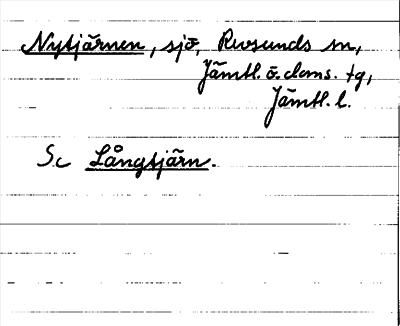 Nytjärnen, sjö, Revsunds sn,
Jämtl. ö. doms. tg,
Jämtl. l.
Se Långtjärn.